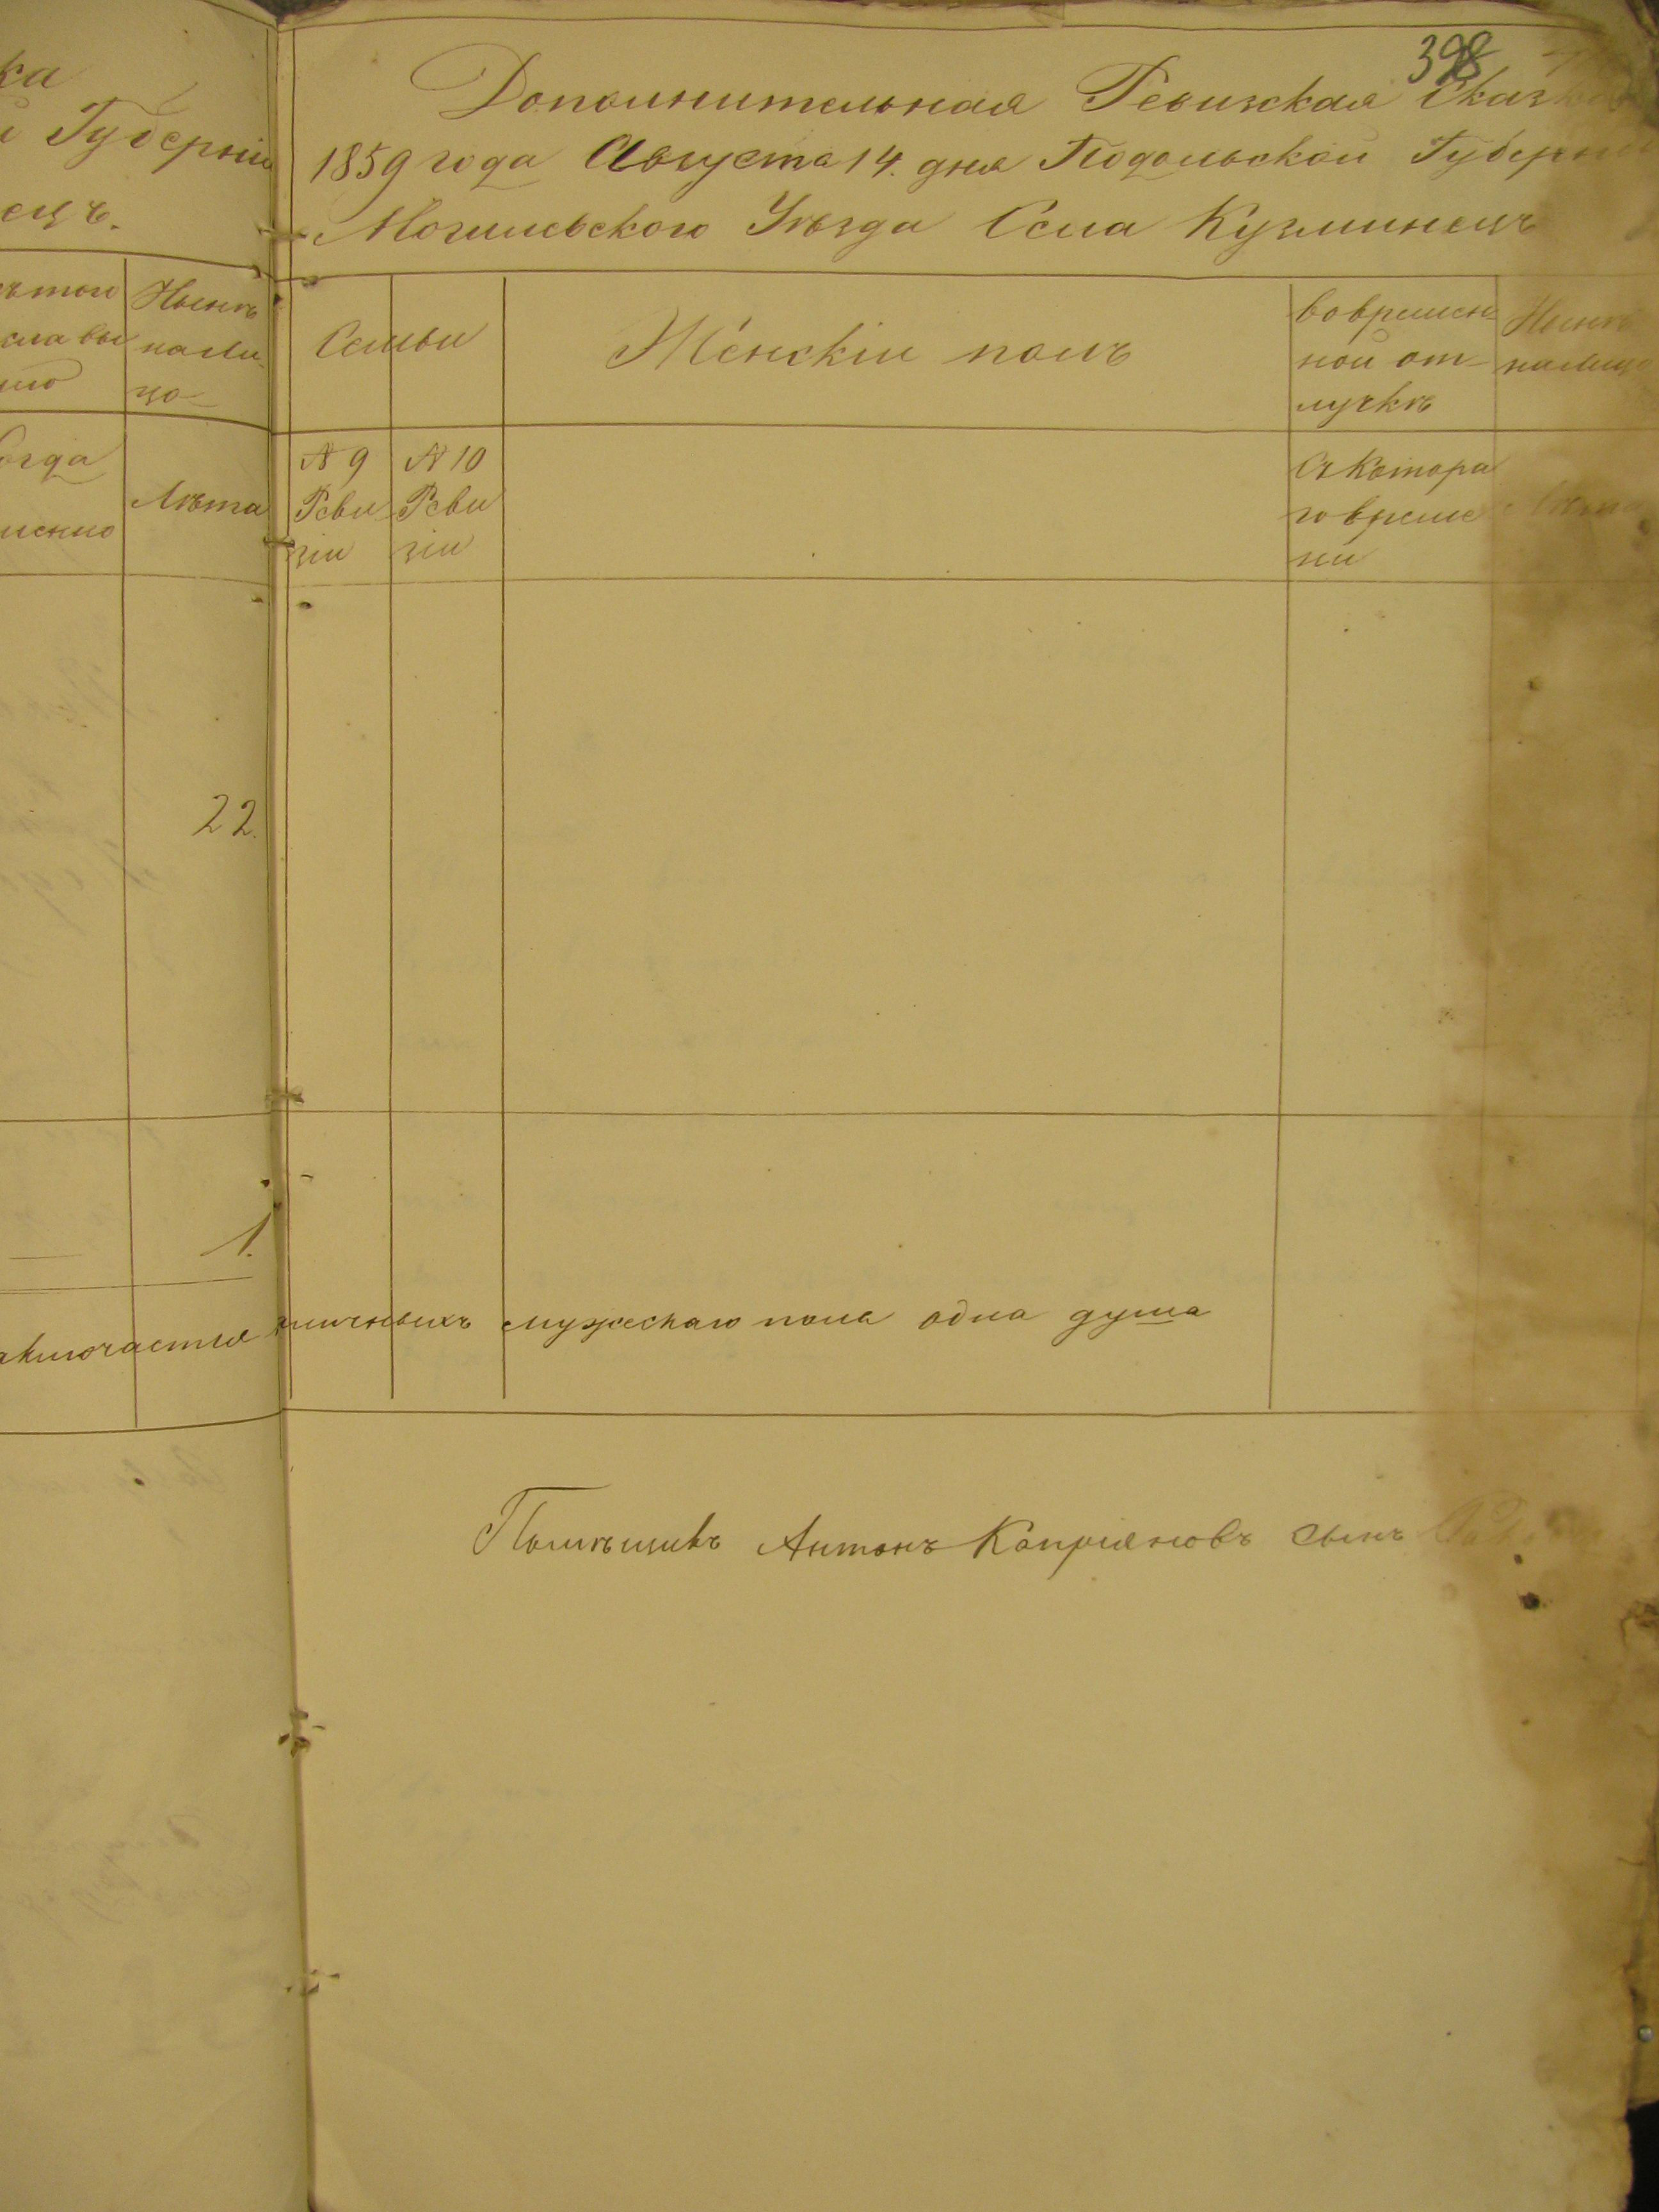 ка
Губерніи
ецъ.
Нынѣ
нали
цо
Лѣта
22.
1.
398
Дополнительная Ревизская Сказка
1859 года Августа 14. дня Подольской Губерніи
Могилевского Уѣзда Села Кузминецъ
Семьи
Женскій полъ
во времен
ной от-
лучкѣ
Нынѣ
налицо
№ 9
Реви
зіи
№ 10
Реви
зіи
Съ котора
го време
ни
Лѣта
наличныхъ мужескаго пола одна душа
Помѣщикъ Антонъ Капріяновъ сынъ